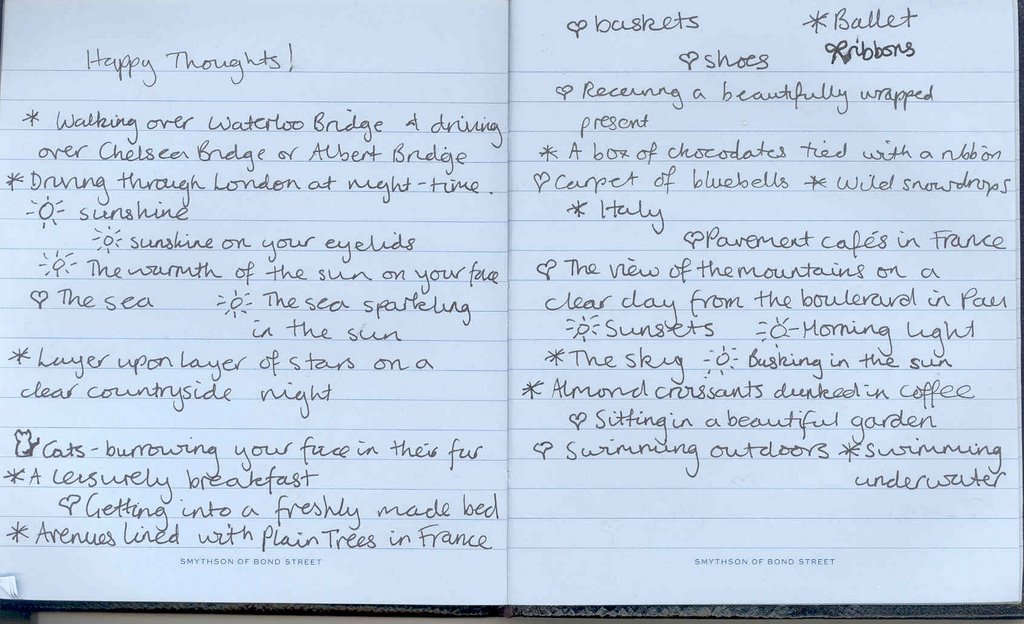 Happy Thoughts!
* Walking over Waterloo Bridge & driving
over Chelsea Bridge or Albert Bridge
* Driving through London at night-time.
sunshine
sunshine on your eyelids
The warmth of the sun on your face
The sea The sea sparkling
in the sun
* Layer upon layer of stars on a
clear countryside night
Cats - burrowing your face in their fur
* A leisurely breakfast
Getting into a freshly made bed
* Avenues lined with Plain Trees in France
SMYTHSON OF BOND STREET
baskets * Ballet
shoes ribbons
Receiving a beautifully wrapped
present
* A box of chocolates tied with a ribbon
Carpet of bluebells * Wild snowdrops
* Italy
Pavement cafés in France
The view of the mountains on a
clear day from the boulevard in Pau
Sunsets Morning light
* The sky Busking in the sun
* Almond croissants dunked in coffee
Sitting in a beautiful garden
Swimming outdoors * Swimming
underwater
SMYTHSON OF BOND STREET